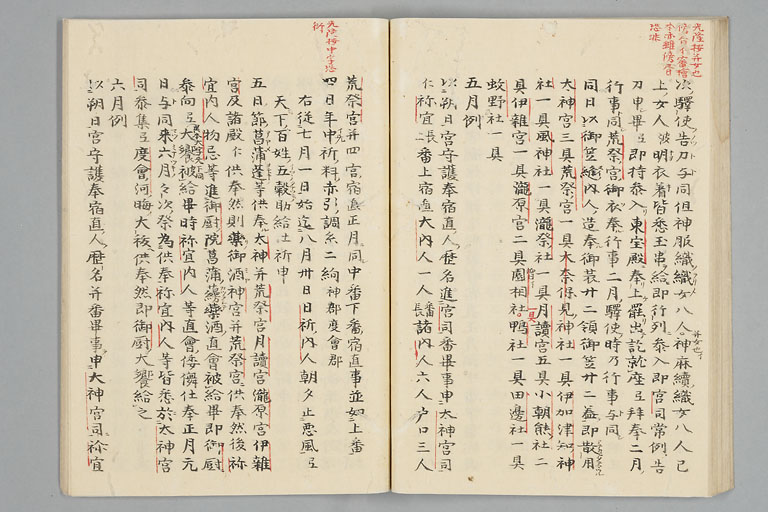 次驛使告刀与同但神服織織女八人神麻續織女八人已
上女人波明衣着皆悉玉串給即行列奉入即宮司常例告
刀申畢即持奉入東宝殿奉上罷出訖就座拜奉二月
行事同荒祭宮御衣奉行事二月驛使時乃行事与同
同日以御笠縫内人造奉御蓑廿二領御笠廿二蓋即散用
太神宮三具荒祭宮一具大奈保見神社一具伊加津知神
社一具風神社一具瀧祭社一具月讀宮五具小朝熊社二
具伊雜宮一具瀧原宮二具園相社一具鴨社一具田邊社一具
蚊野社一具
五月例
以朔日宮守護奉宿直人歴名進宮司番畢事申太神宮司
仁祢宜長番上宿直大内人一人番長諸内人六人戸口三人
荒祭宮并四宮宿直正月同中番下番宿直事並如上番
四日年中祈料赤引調糸二絢神郡度會郡
右従七月一日始迄八月卅日日祈内人朝夕止悪風
天下百姓五穀助給止祈申
五日節菖蒲蓬等供奉太神并荒祭宮月讀宮瀧原宮伊雜
宮及諸殿仁供奉然則御酒神宮并荒祭宮供奉然後祢
宜内人物忌等進御厨院菖蒲蘰酒直會被給畢即御厨
奉向大饗被給畢時祢宜内人等直會倭儛仕奉正月元
日与同六月次祭為供奉祢宜内人等皆悉於太神宮
司参集度會河晦大祓供奉然即御厨大饗給之
六月例
以朔日宮守護奉宿直人歴名并番畢事申大神宮司祢宜